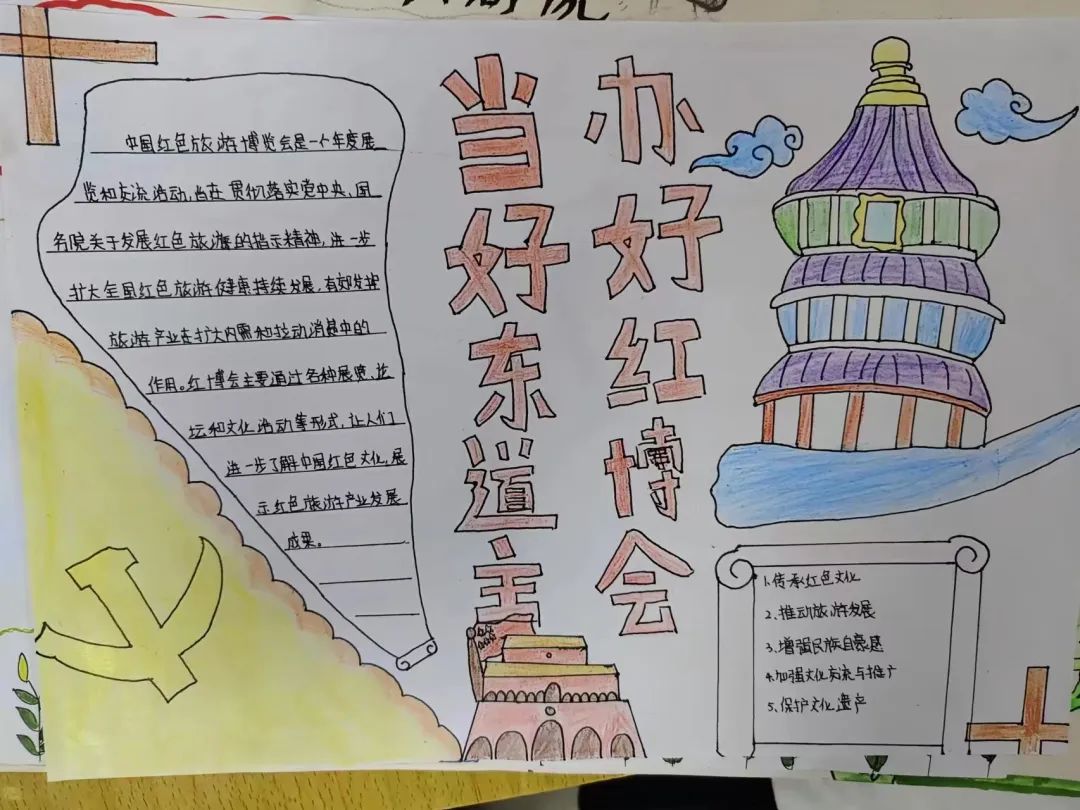 办好红博会
当好东道主
中国红色旅游博览会是一个年度展
览和交流活动,旨在贯彻落实党中央、国
务院关于发展红色旅游的指示精神,进一步
扩大全国红色旅游健康持续发展,有效发挥
旅游产业在扩大内需和拉动消费中的
作用。红博会主要通过各种展览、论
坛和文化活动等形式,让人们
进一步了解中国红色文化,展
示红色旅游产业发展
成果。
1.传承红色文化
2.推动旅游发展
3.增强民族自豪感
4.加强文化交流与推广
5.保护文化遗产